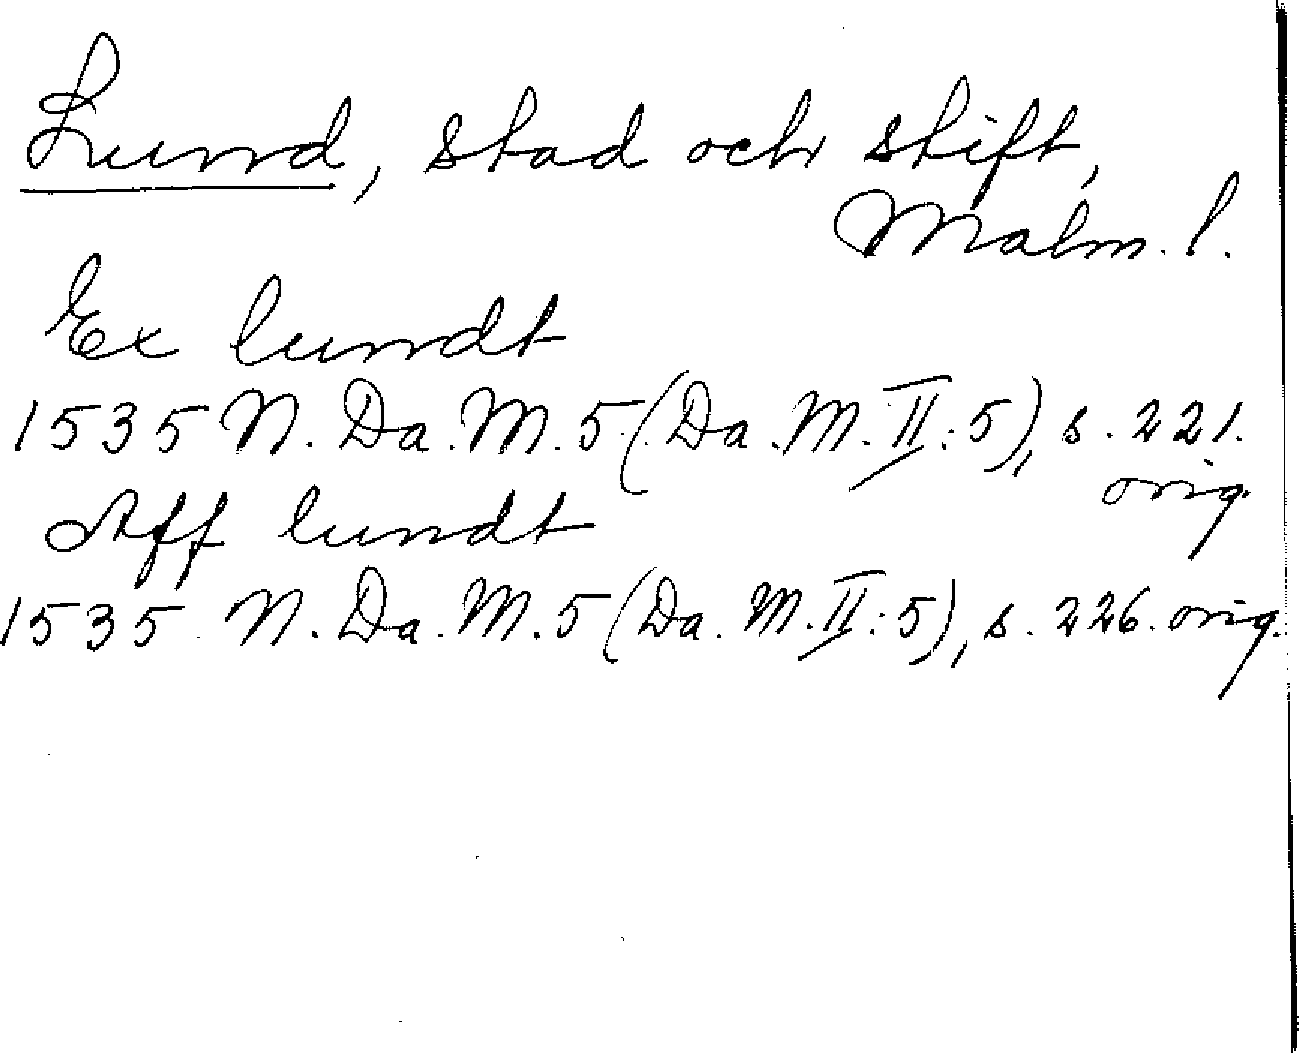 Lund, stad och stift,
Malm. l.
Ex lundt
1535 N. Da. M. 5 (Da. M. II: 5), s. 221.
orig.
Aff lundt
1535 N. Da. M. 5 (Da. M. II: 5), s. 226. orig.